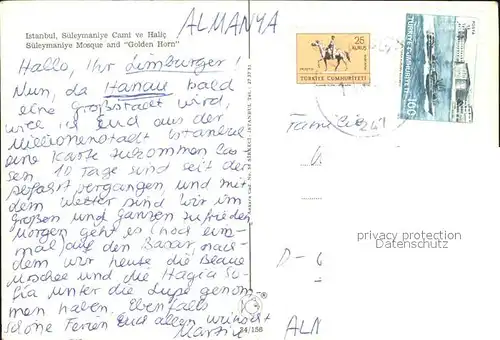 ALMANYA
Istanbul, Süleymaniye Cami ve Haliç
Süleymaniye Mosque and "Golden Horn"
Hallo, Ihr Limburger!
Nun, da Hanau bald
eine Großstadt wird,
will ich Euch aus der
Millionenstadt Istanbul
eine Karte zukommen las
sen. 10 Tage sind seit der
Abfahrt vergangen und mit
dem Wetter sind wir im
großen und ganzen zufrieden
Morgen geht es noch ein-
mal auf den Basar, nach-
dem wir heute die Blaue
Moschee und die Hagia So-
fia unter die Lupe genom-
men haben. Ebenfalls
schöne Ferien Euch allen wünscht
Martin
34/156
25
KURUŞ
TÜRKİYE CUMHURİYETİ
POSTA
TÜRKİYE CUMHURİYETİ
100
Familie
privacy protection
Datenschutz
D-6
ALM